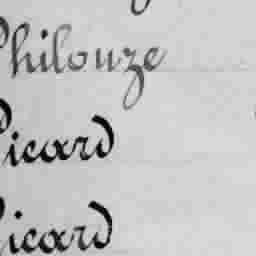 Philouze
Picard
Picard